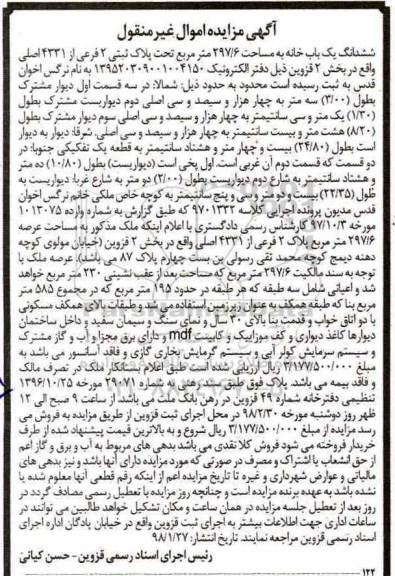 آگهی مزایده اموال غیرمنقول
ششدانگ یک باب خانه به مساحت ۲۹۷/۶ متر مربع تحت پلاک ثبتی ۲ فرعی از ۴۳۳۱ اصلی
واقع در بخش ۲ قزوین ذیل دفتر الکترونیک ۱۳۹۵۲۰۳۰۹۰۰۱۰۰۴۱۵۰ به نام نرگس اخوان
قدس به ثبت رسیده است محدود به حدود ذیل: شمالا: در سه قسمت اول دیوار مشترک
بطول (۳/۰۰) سه متر به چهار هزار و سیصد و سی اصلی دوم دیواریست مشترک بطول
(۱/۳۰) یک متر و سی سانتیمتر به چهار هزار و سیصد و سی اصلی سوم دیوار مشترک بطول
(۸/۲۰) هشت متر و بیست سانتیمتر به چهار هزار و سیصد و سی اصلی. شرقا: دیوار به دیوار
است بطول (۲۴/۸۰) بیست و چهار متر و هشتاد سانتیمتر به قطعه یک تفکیکی جنوبا: در
دو قسمت که قسمت دوم آن غربی است. اول پخی است (دیواریست) بطول (۱۰/۸۰) ده متر
و هشتاد سانتیمتر به شارع دوم دیواریست بطول (۲/۰۰) دو متر به شارع غربا: دیواریست به
طول (۲۲/۳۵) بیست و دو متر و سی و پنج سانتیمتر به کوچه خاص ملکی خانم نرگس اخوان
قدس مدیون پرونده اجرایی کلاسه ۹۷۰۱۳۳۲ که طبق گزارش به شماره وارده ۱۰۱۳۰۷۵
مورخه ۹۷/۱۰/۳ کارشناس رسمی دادگستری با اعلام اینکه ملک مذکور با مساحت عرصه
۲۹۷/۶ متر مربع پلاک ۲ فرعی از ۴۳۳۱ اصلی واقع در بخش ۲ قزوین (خیابان مولوی کوچه
دهنه دیمج کوچه محمد تقی رسولی بن بست چهارم پلاک ۸۷ می باشد). عرصه ملک با
توجه به سند مالکیت ۲۹۷/۶ متر مربع که مساحت بعد از عقب نشینی ۲۳۰ متر مربع خواهد
شد و اعیانی شامل سه طبقه که هر طبقه در حدود ۱۹۵ متر مربع که در مجموع ۵۸۵ متر
مربع بنا که طبقه همکف به عنوان زیرزمین استفاده می شد و طبقات بالای همکف مسکونی
با دو اتاق خواب و قدمت بنا بالای ۳۰ سال و نمای سنگ و سیمان سفید و داخل ساختمان
دیوارها کاغذ دیواری و کف موزاییک و کابینت mdf و دارای برق مجزا و آب و گاز مشترک
و سیستم سرمایش کولر آبی و سیستم گرمایش بخاری گازی و فاقد آسانسور می باشد به
مبلغ ۳/۱۷۷/۵۰۰/۰۰۰ ریال ارزیابی شده است طبق اعلام بستانکار ملک در تصرف مالک
و فاقد بیمه می باشد. پلاک فوق طبق سند رهنی به شماره ۲۹۰۷۱ مورخه ۱۳۹۶/۱۰/۲۵
تنظیمی دفترخانه شماره ۴۹ قزوین در رهن بانک ملت می باشد. از ساعت ۹ صبح الی ۱۲
ظهر روز دوشنبه مورخه ۹۸/۲/۳۰ در محل اجرای ثبت قزوین از طریق مزایده به فروش می
رسد مزایده از مبلغ ۳/۱۷۷/۵۰۰/۰۰۰ ریال شروع و به بالاترین قیمت پیشنهاد شده از طرف
خریدار فروخته می شود فروش کلا نقدی می باشد بدهی های مربوط به آب و برق و گاز اعم
از حق انشعاب یا اشتراک و مصرف در صورتی که مورد مزایده دارای آنها باشد و نیز بدهی های
مالیاتی و عوارض شهرداری و غیره تا تاریخ مزایده اعم از اینکه رقم قطعی آنها معلوم شده یا
نشده باشد به عهده برنده مزایده است و چنانچه روز مزایده با تعطیل رسمی مصادف گردد در
روز بعد از تعطیل جلسه مزایده در همان ساعت و مکان تشکیل خواهد طالبین می توانند در
ساعات اداری جهت اطلاعات بیشتر به اجرای ثبت قزوین واقع در خیابان پادگان اداره اجرای
اسناد رسمی قزوین مراجعه نمایند. تاریخ انتشار: ۹۸/۱/۲۷
رئیس اجرای اسناد رسمی قزوین - حسن کیانی
۱۲۲